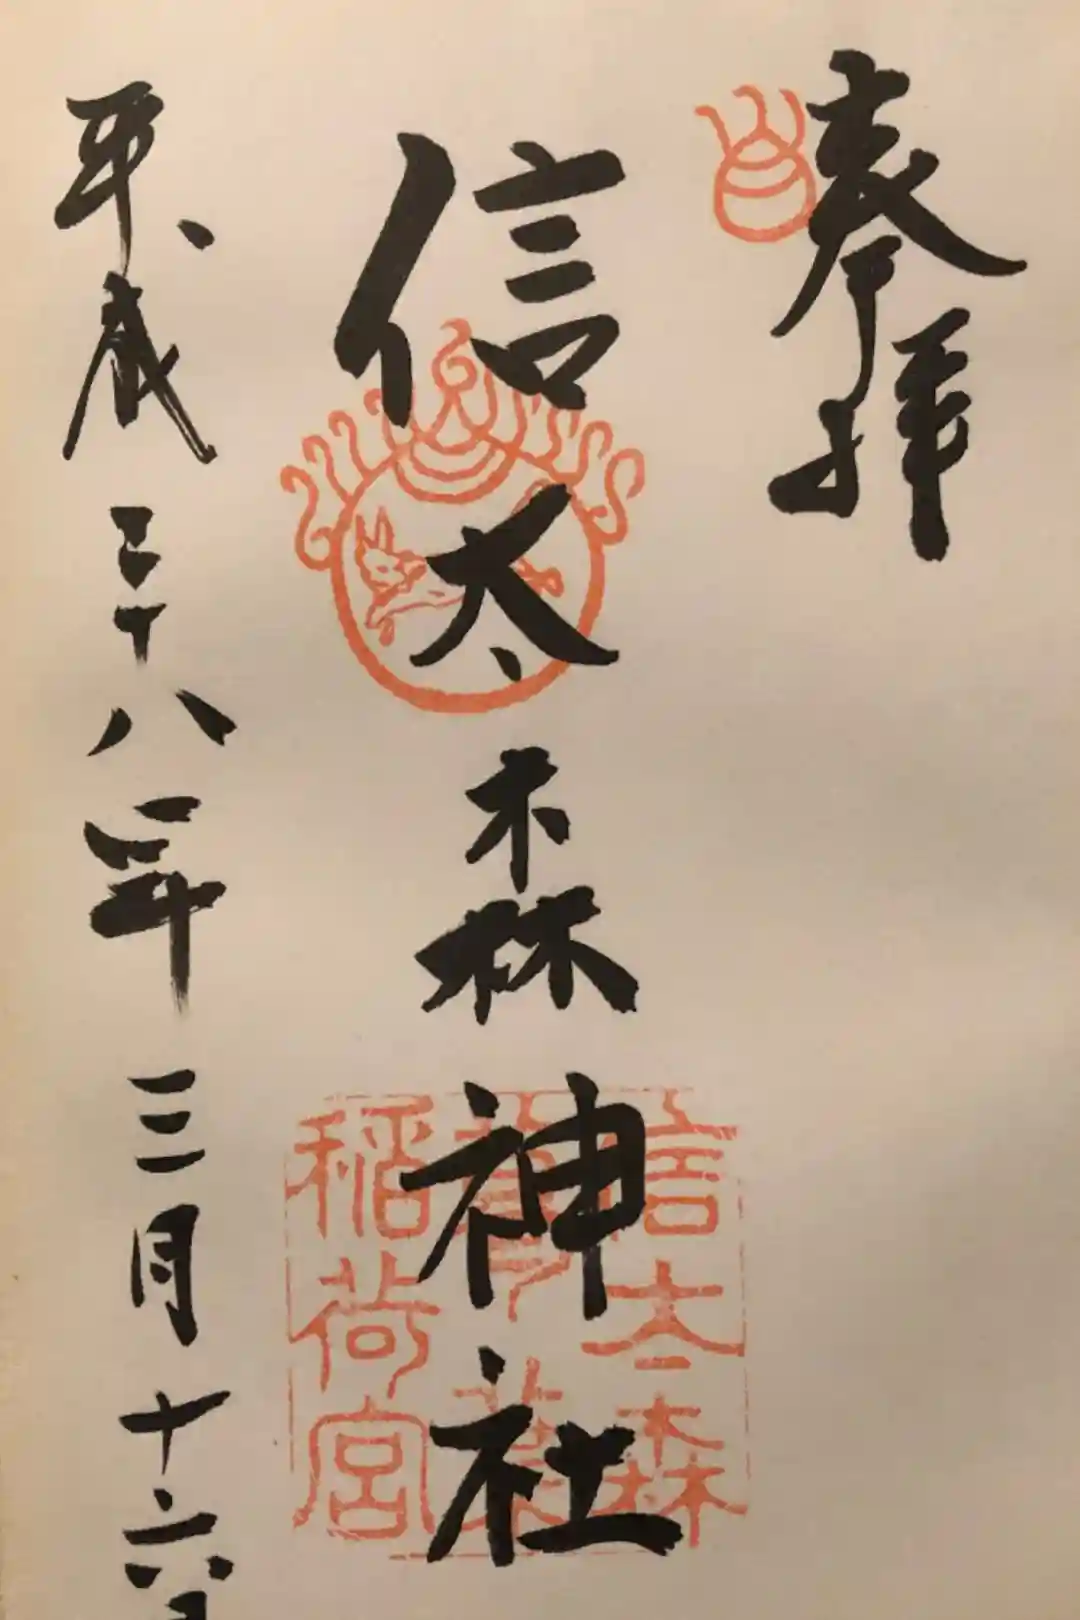 奉拝
信太森神社
信太森
葛葉
稲荷宮
平成二十八年三月十六日